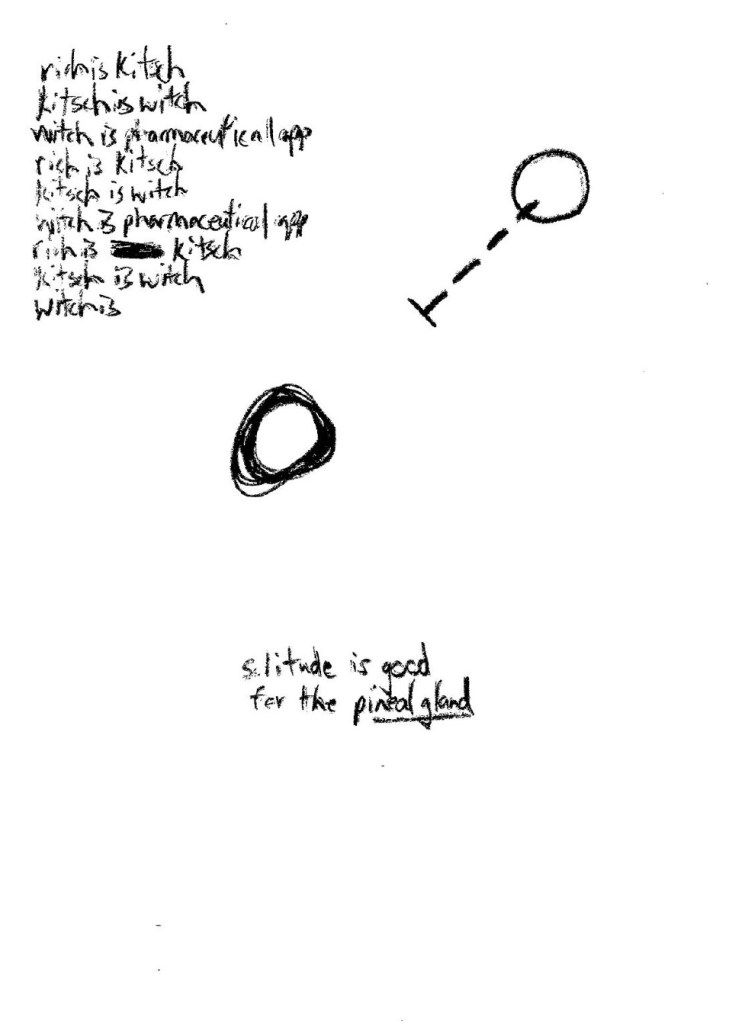 rich is kitsch
kitsch is witch
witch is pharmaceutical app
rich is kitsch
kitsch is witch
witch is pharmaceutical app
rich is kitsch
kitsch is witch
witch is
solitude is good
for the pineal gland